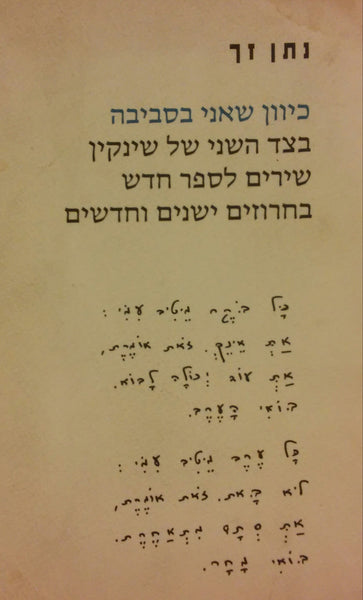 נתן זך
כיוון שאני בסביבה
בצד השני של שינקין
שירים לספר חדש
בחרוזים ישנים וחדשים
כָּל בֹּקֶר מֵיטִיב עִמִּי :
אַתְּ אֵינֵךְ. זֹאת אוֹמֶרֶת,
אַתְּ עוֹד יְכוֹלָה לָבוֹא.
בּוֹאִי הָעֶרֶב.
כָּל עֶרֶב מֵיטִיב עִמִּי :
לֹא בָּאת. זֹאת אוֹמֶרֶת,
אַתְּ סְתָם מִתְאַחֶרֶת.
בּוֹאִי מָחָר.